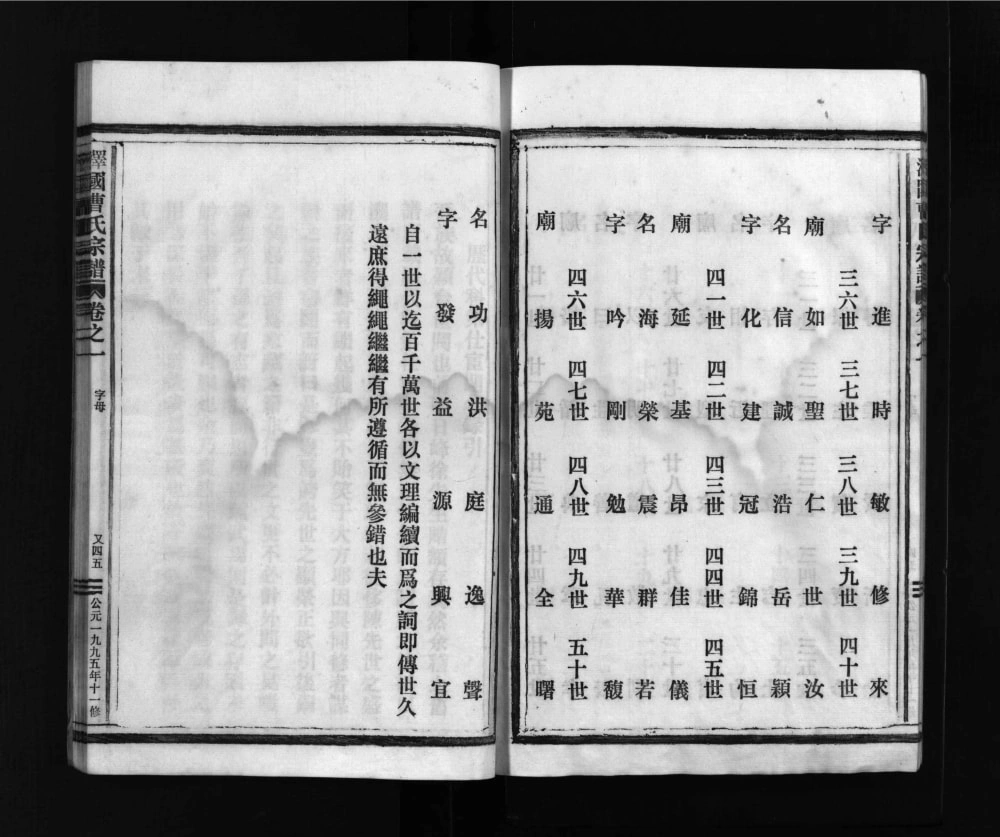 字進時敏修來
三六世三七世三八世三九世四十世
廟如聖仁世汝
名信誠浩岳穎
字化建冠錦恒
四一世四二世四三世四四世四五世
廟延基昂佳儀
名海榮震群若
字吟剛勉華馥
四六世四七世四八世四九世五十世
廟揚苑通全曙
名功洪庭逸聲
字發益源興宜
自一世以迄百千萬世各以文理編續而爲之詞即傳世久
遠庶得繩繩繼繼有所遵循而無參錯也夫
澤國曹氏宗譜 卷之一 字母 又四五 公元一九九五年十一修